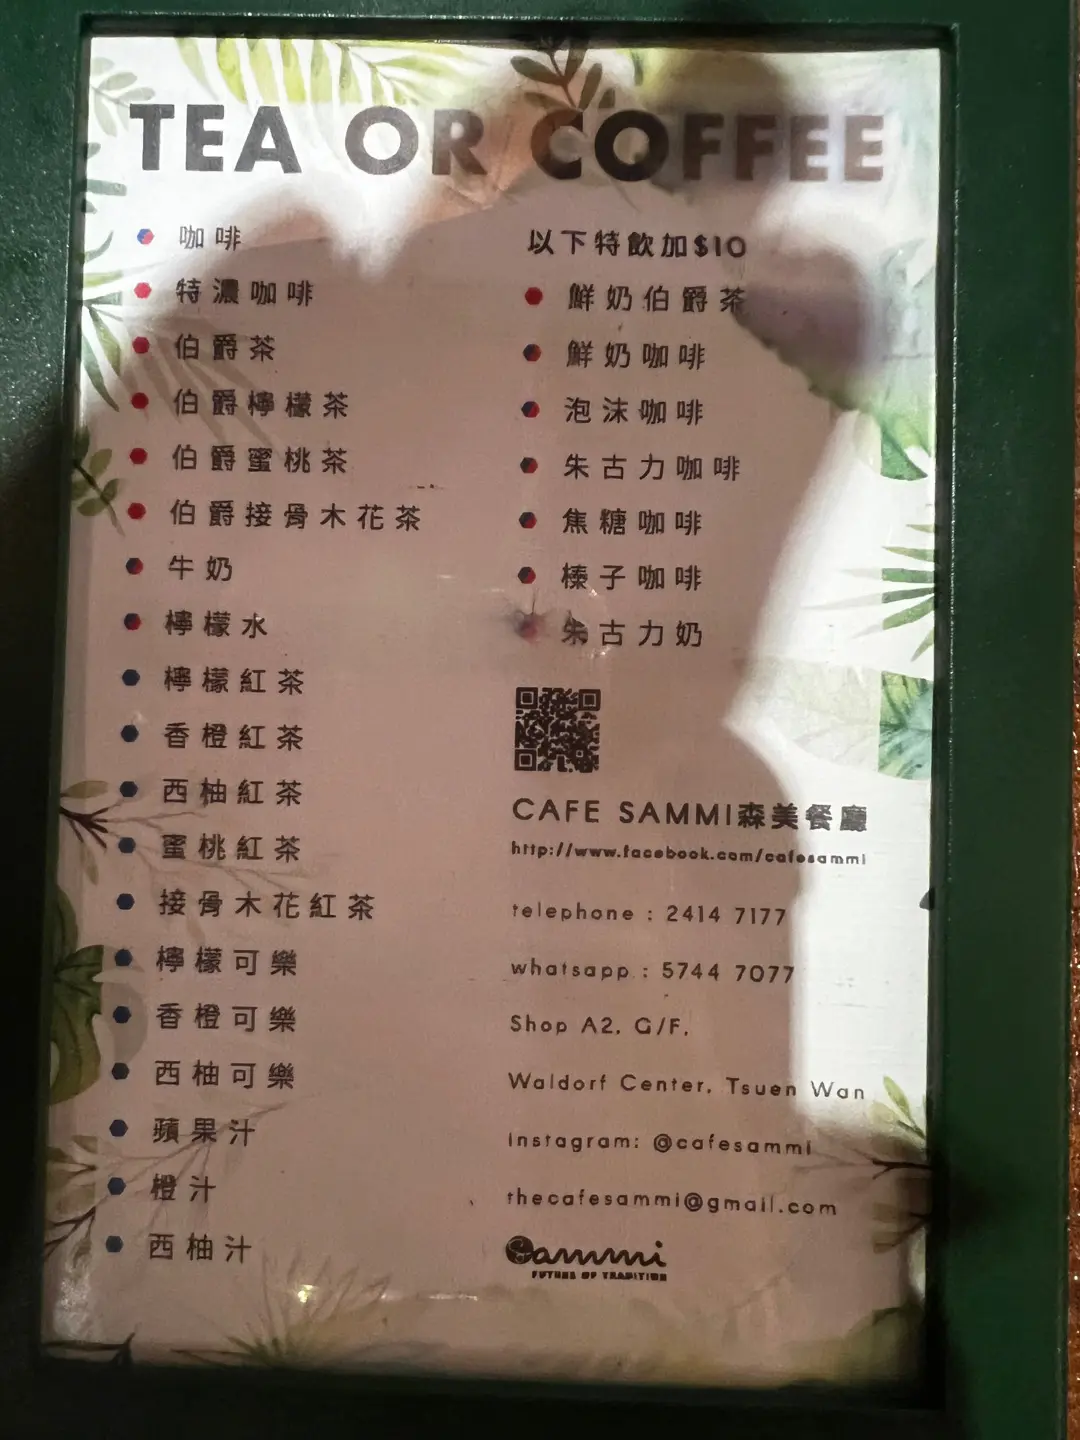 TEA OR COFFEE
咖啡
特濃咖啡
伯爵茶
伯爵檸檬茶
伯爵蜜桃茶
伯爵接骨木花茶
牛奶
檸檬水
檸檬紅茶
香橙紅茶
西柚紅茶
蜜桃紅茶
接骨木花紅茶
檸檬可樂
香橙可樂
西柚可樂
蘋果汁
橙汁
西柚汁
以下特飲加$10
鮮奶伯爵茶
鮮奶咖啡
泡沫咖啡
朱古力咖啡
焦糖咖啡
榛子咖啡
朱古力奶
CAFE SAMMI森美餐廳
http://www.facebook.com/cafesammi
telephone : 2414 7177
whatsapp : 5744 7077
Shop A2, G/F,
Waldorf Center, Tsuen Wan
instagram: @cafesammi
thecafesammi@gmail.com
Sammi
FUTURE OF TRADITION